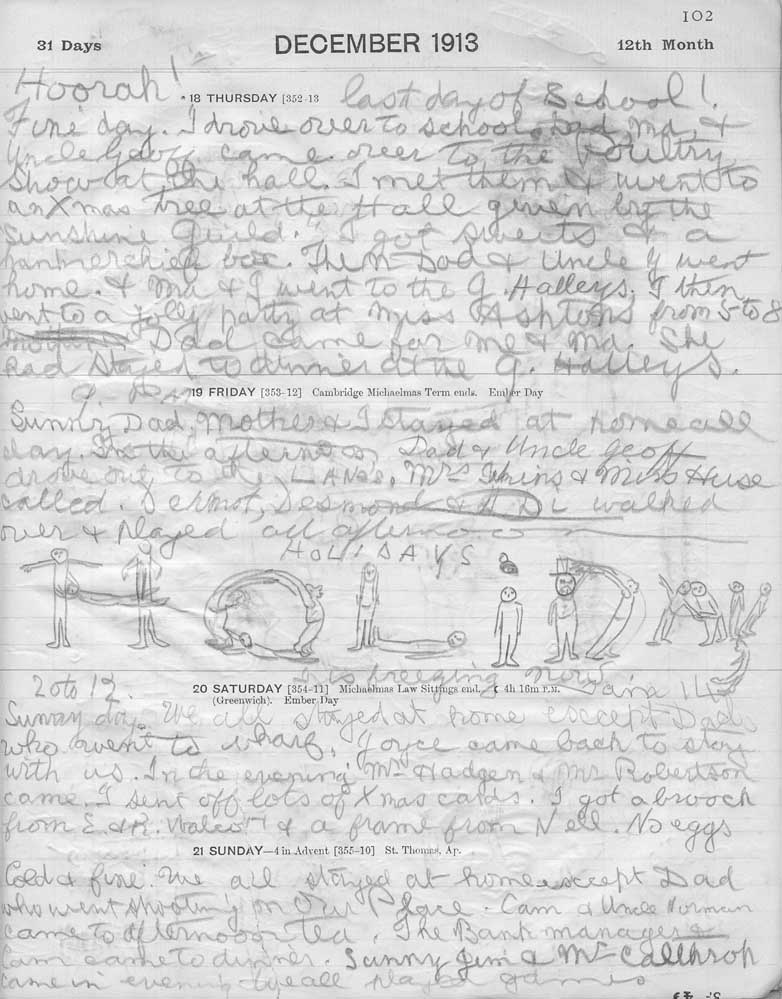 102
31 Days DECEMBER 1913 12th Month
Hoorah! 18 THURSDAY [352-13 last day of School!
Fine day. I drove over to school. Dad, Ma, &
Uncle Geoff came over to the Poultry
Show at the hall. I met them & went to
an Xmas tree at the Hall given by the
"Sunshine Guild." I got sweets & a
hankerchief box. Then Dad & Uncle G went
home. & Ma & I went to the G. Halleys. I then
went to a jolly party at Miss Ashtons from 5 to 8
Dad came for me & Ma. She
had stayed to dinner at the G. Halleys.
19 FRIDAY [353-12] Cambridge Michaelmas Term ends. Ember Day
Sunny Dad, Mother & I stayed at home all
day. In the afternoon Dad & Uncle Geoff
drove out to the Lanes, Mrs & Miss
called. Dermot, Desmond & Di walked
over & played all afternoon
HOLIDAYS
HOLIDAY
It is freezing now
20 to 12. 20 SATURDAY [354-11] Michaelmas Law Sittings end. ☾ 4h 16m P.M.
(Greenwich). Ember Day
Sunny day. We all stayed at home except Dad
who went to wharf. Joyce came back to stay
with us. In the evening Mr Hadgen & Mr Robertson
came. I sent off lots of Xmas cards. I got a brooch
from E. & R. Walcot & a frame from Nell. No eggs
21 SUNDAY—4 in Advent [355-10] St. Thomas, Ap.
Cold & fine. We all stayed at home except Dad
who went shooting on Our Place. Cam & Uncle Norman
came to afternoon tea. The Bank manager &
Cam came to dinner. Sunny Jim & Mr Callthrop
came in evening we all played games